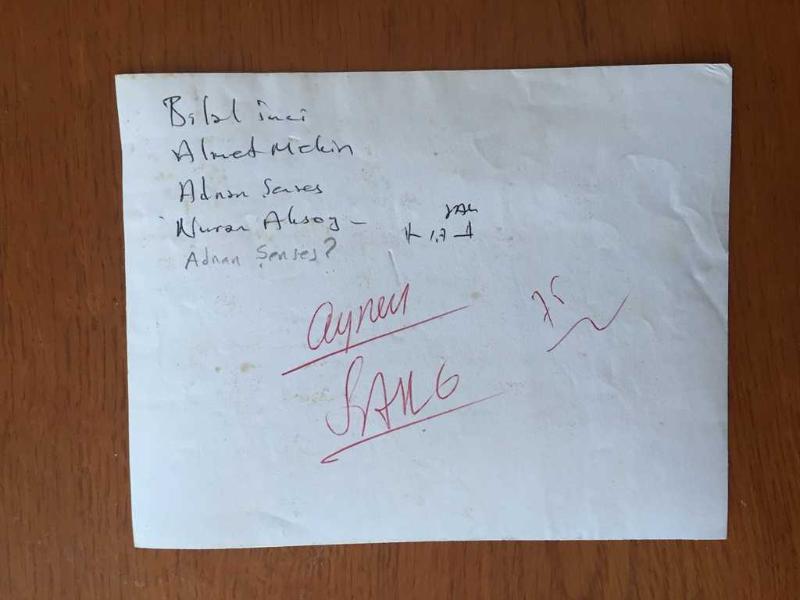 Bilal İnci
Ahmet Mekin
Adnan Senses
Nuran Aksoy -
Adnan Şenses?
aynen
75